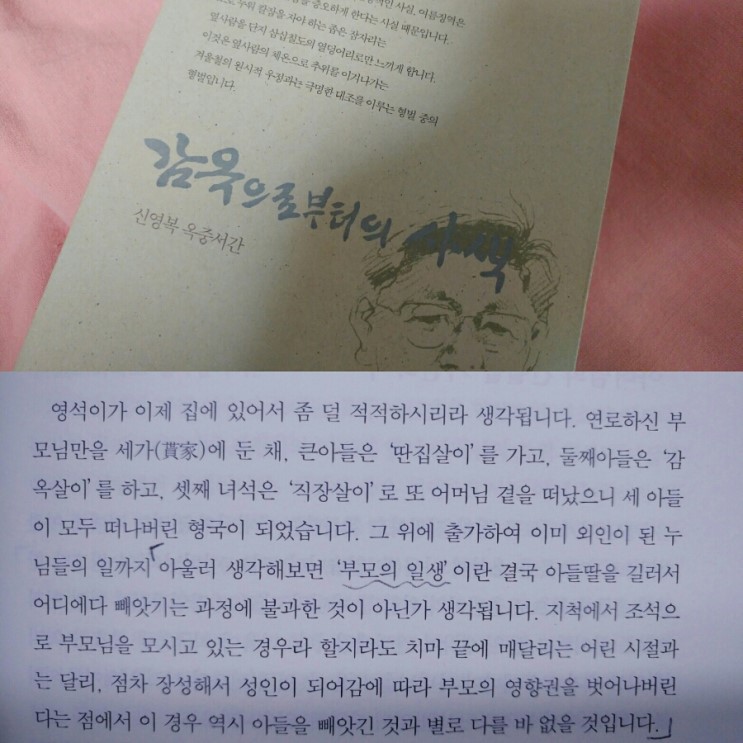 중오하게 한다는 사실 때문입니다.
누워 칼잠을 자야 하는 좁은 잠자리는
옆사람을 단지 삼십칠도의 열덩어리로만 느끼게 합니다.
이것은 옆사람의 체온으로 추위를 이겨나가는
겨울철의 원시적 우정과는 극명한 대조를 이루는 형벌 중의
형벌입니다.
감옥으로부터의 사색
신영복 옥중서간
영석이가 이제 집에 있어서 좀 덜 적적하시리라 생각됩니다. 연로하신 부
모님만을 세가(貰家)에 둔 채, 큰아들은 ‘딴집살이’를 가고, 둘째아들은 ‘감
옥살이’를 하고, 셋째 녀석은 ‘직장살이’로 또 어머님 곁을 떠났으니 세 아들
이 모두 떠나버린 형국이 되었습니다. 그 위에 출가하여 이미 외인이 된 누
님들의 일까지 아울러 생각해보면 ‘부모의 일생’이란 결국 아들딸을 길러서
어디에다 빼앗기는 과정에 불과한 것이 아닌가 생각됩니다. 지척에서 조석으
로 부모님을 모시고 있는 경우라 할지라도 치마 끝에 매달리는 어린 시절과
는 달리, 점차 장성해서 성인이 되어감에 따라 부모의 영향권을 벗어나버린
다는 점에서 이 경우 역시 아들을 빼앗긴 것과 별로 다를 바 없을 것입니다.